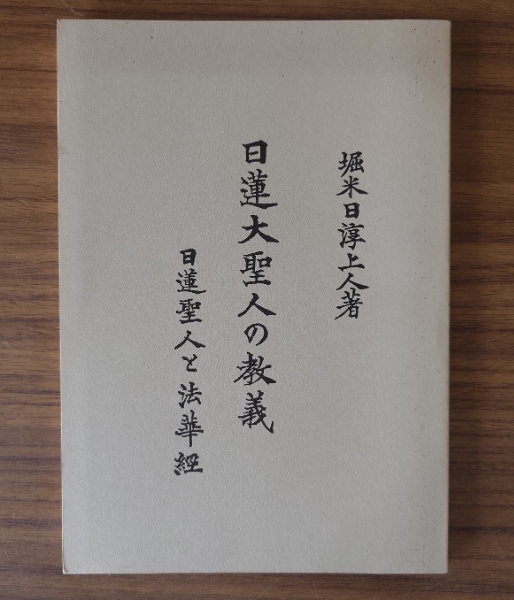 堀米日淳上人著
日蓮大聖人の教義
日蓮聖人と法華経